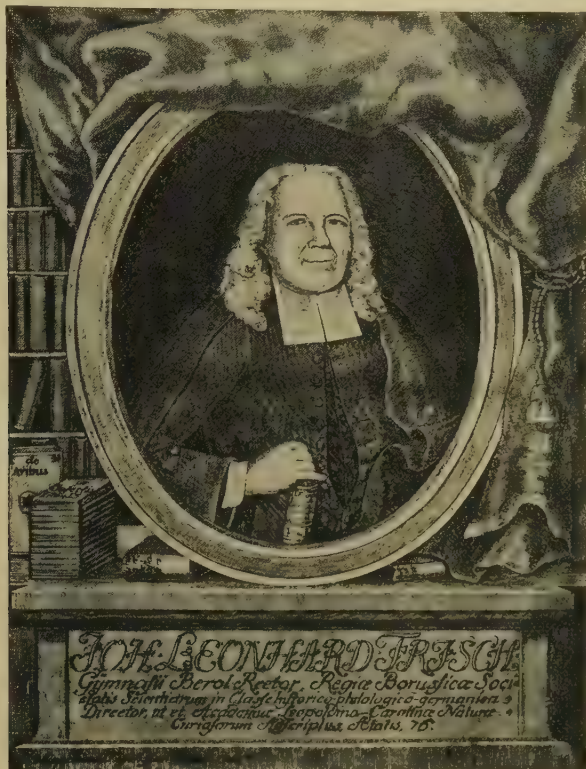 de
Avibus
JOH: LEONHARD FRISCH.
Gymnasii Berol: Rector, Regiæ Borussicæ Soci-
etatis Scientiarum in Classe historico-philologico-germanica
Director, ut et Academiæ Leopoldino-Carolinæ Naturæ-
Curiosorum Adscriptus, Ætatis, 76.